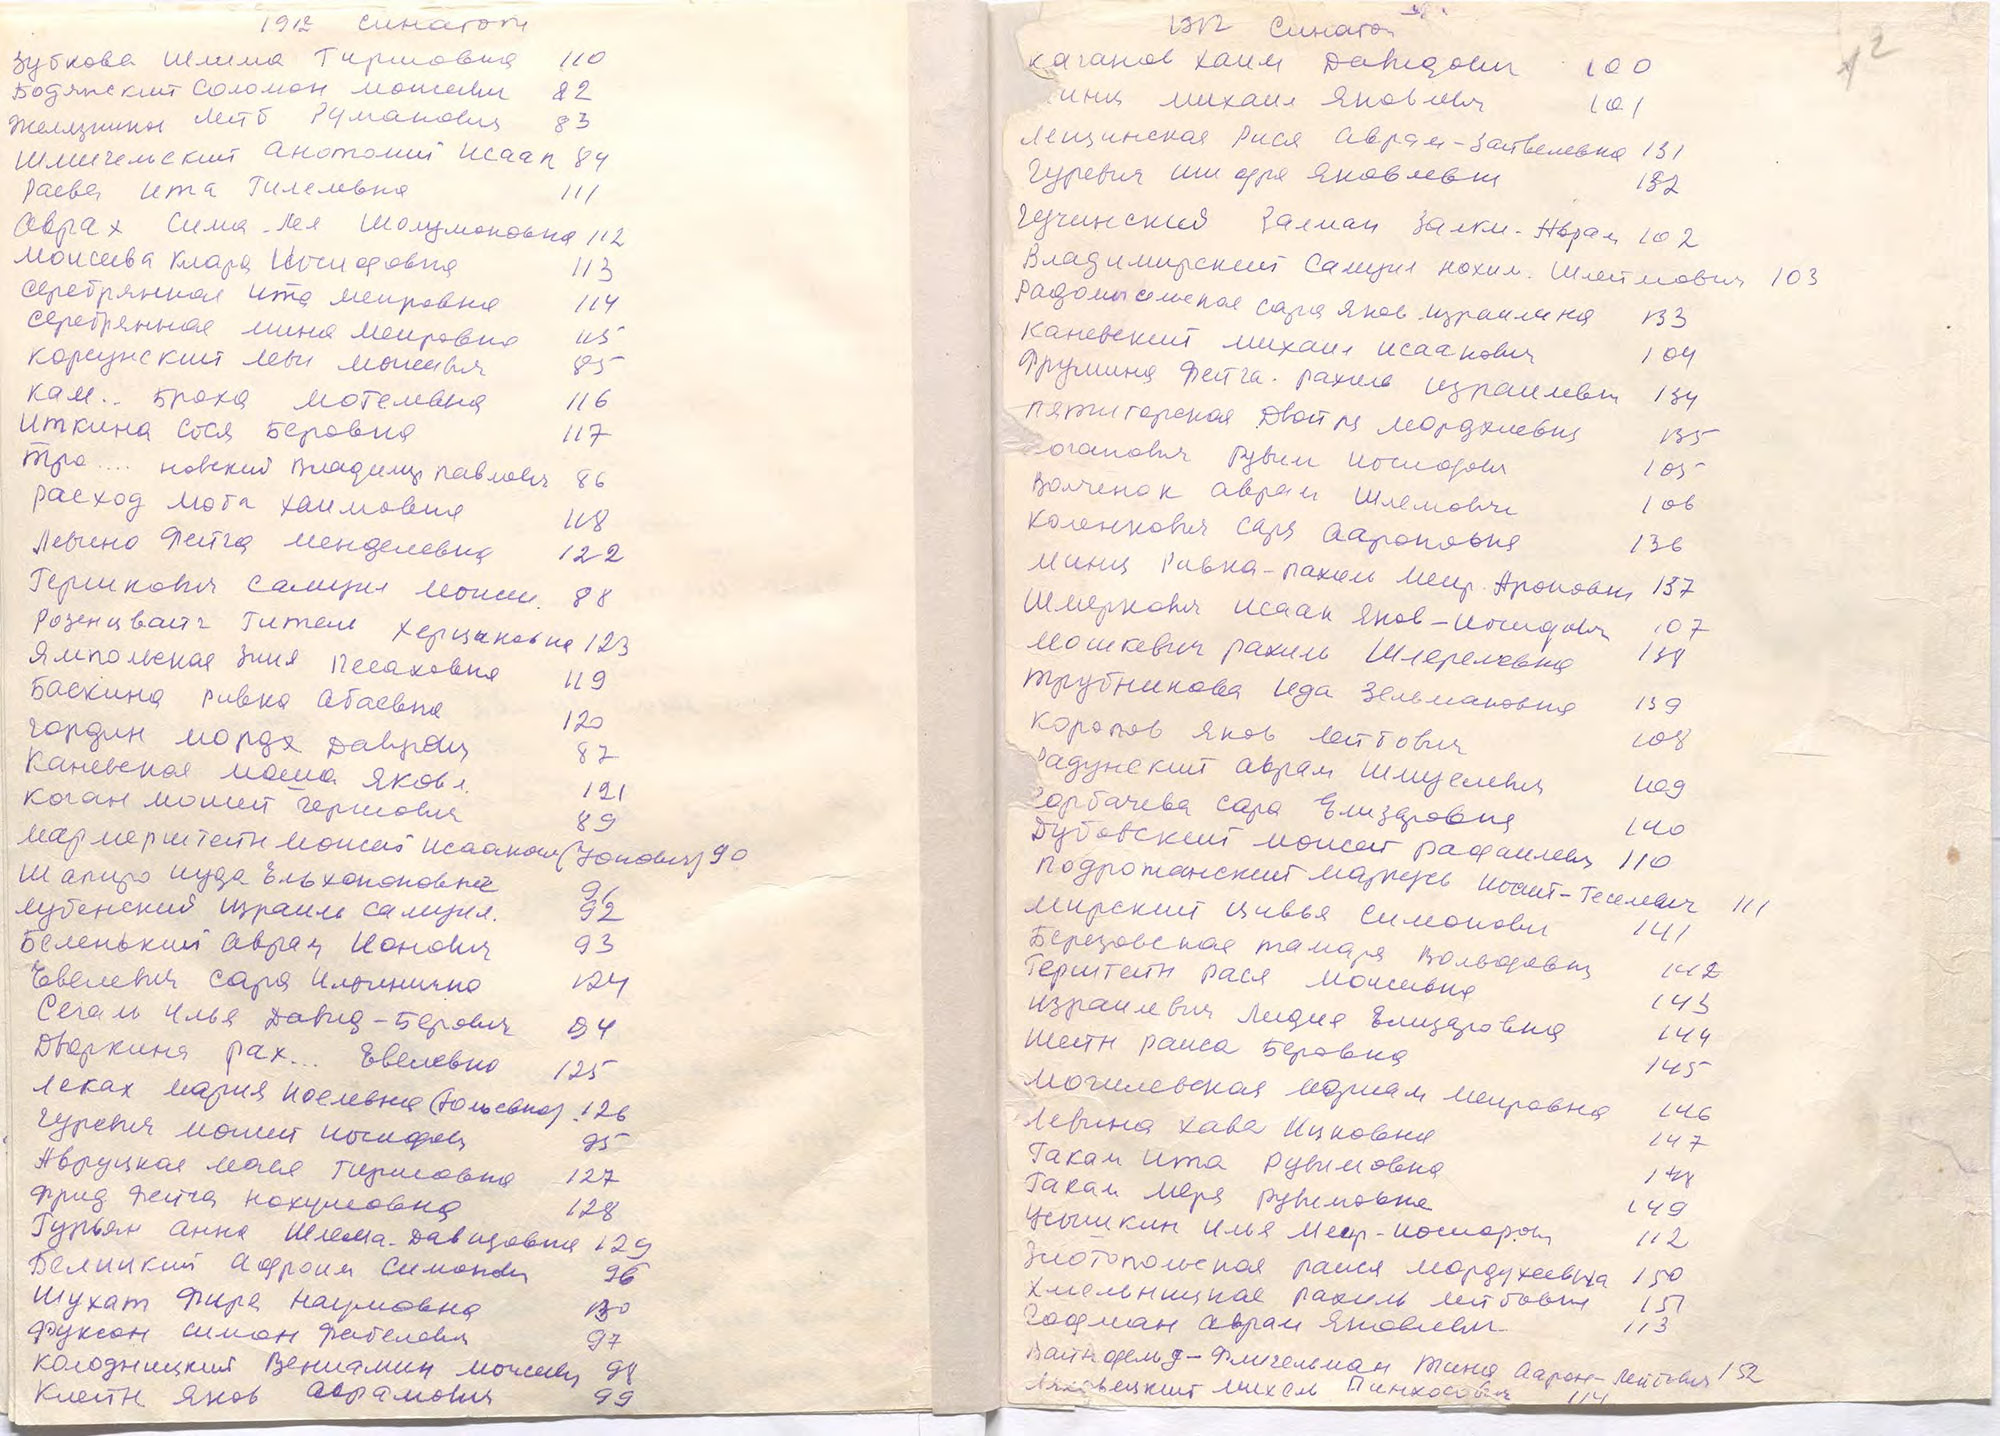 1912 Синагоги
Зубкова Шлима Гиршовна 110
Бодянский Соломон Моисеевич 82
Лейб Румanович 83
Анатолий Исаак 84
Раева Ита Гилелевна 111
Аврах Сима-Лея Шолумоновна 112
Моисеева Клара Иосифовна 113
Серебрянная Ита Меировна 114
Серебрянная Мина Меировна 115
Корсунский Леви Моисеевич 85
Кам.. Броха Мотелевна 116
Иткина Сося Беровна 117
Тро.... новский Владимир Павлович 86
Расход Мота Хаимовна 118
Левина Фейга Менделевна 122
Гершкович Самуил Моисе. 88
Розенцвайг Гитель Херцановна 123
Ямпольская Зиня Песаховна 119
Баскина Ривка Абаевна 120
Гордин Мордх Давидович 87
Каневская Маша Яковл. 121
Коган Моисей Гершович 89
Мармерштейн Моисей Исаакович (Чонович) 90
Шапиро Иуда Ельхононовна 96
Лубенский Израиль Самуил. 92
Беленький Аврам Ионович 93
Евелевич Сара Ильинична 124
Сегаль Илья Давид-Берович 94
Дворкина Рах... Евелевна 125
Леках Мария Иоелевна (Юльевна). 126
Гуревич Моисей Иосифович 95
Авруцкая Маня Гиршовна 127
Фрид Фейга Нохумовна 128
Гурьян Анна Шлема-Давидовна 129
Белицкий Афроим Симонович 96
Шухат Фира Наумовна 130
Фуксон Симон Файбелевич 97
Колодницкий Вениамин Моисеевич 98
Клейн Яков Абрамович 99
1912 Синагог
Каганов Хаим Давидович 100
инц Михаил Яковлевич 101
Лещинская Рися Аврам-Зайвелевна 131
Гуревич Шифра Яковлевна 132
Гучинский Залман Залки-Аврам 102
Владимирский Самуил Нохим. Шлеймович 103
Радомысльская Сара Яков Израилевна 133
Каневский Михаил Исаакович 104
Фрумина Фейга. Рахиль Израилевна 134
Пятигорская Двойра Мордхиевна 135
оганович Рувим Иосифович 105
Волченок Аврам Шлемович 106
Каленкович Сара Аароновна 136
Минц Ривка-Рахиль Меир. Ароновна 137
Шмеркович Исаак Яков-Иосифович 107
Мошкевич Рахиль Шмерелевна 138
Трубникова Ида Зельмановна 139
Коропов Яков Лейбович 108
Радунский Аврам Шмуелевич 109
Горбачева Сара Елизаровна 140
Дубовский Моисей Рафаилевич 110
Подрожанский Маркусь Иосит-Теселевич 111
Мирский Цивья Симонович 141
Березовская Тамара Вольфовна 142
Герштейн Рася Моисеевна 143
Израилевич Лидия Елизаровна 144
Шейн Раиса Беровна 145
Могилевская Мариам Меировна 146
Левина Хава Ицковна 147
Гакам Ита Рувимовна 148
Гакам Меря Рувимовна 149
Усышкин Илья Меер-Иосифович 112
Златопольская Раися Мордухеевна 150
Хмельницкая Рахиль Лейбовна 151
Гофман Аврам Яковлевич 113
Вайнфельд-Фligельман Тина Аарон-Лейбович 152
Ляховецкий Михаил Пинхосович 114